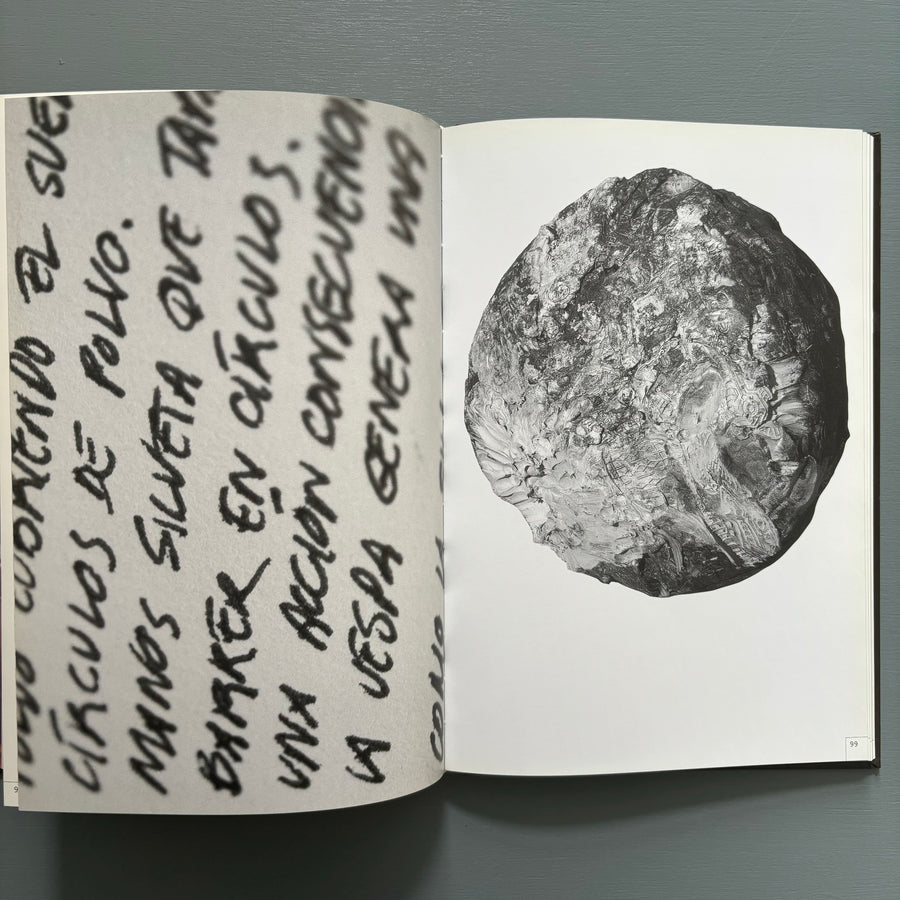 EL SUE
CÍRCULOS DE POLVO.
MANOS SILUETA QUE TAM
BARRER EN CÍRCULOS.
UNA ACCIÓN CONSECUENCI
LA VESPA GENERA UNA
COMO LA
99